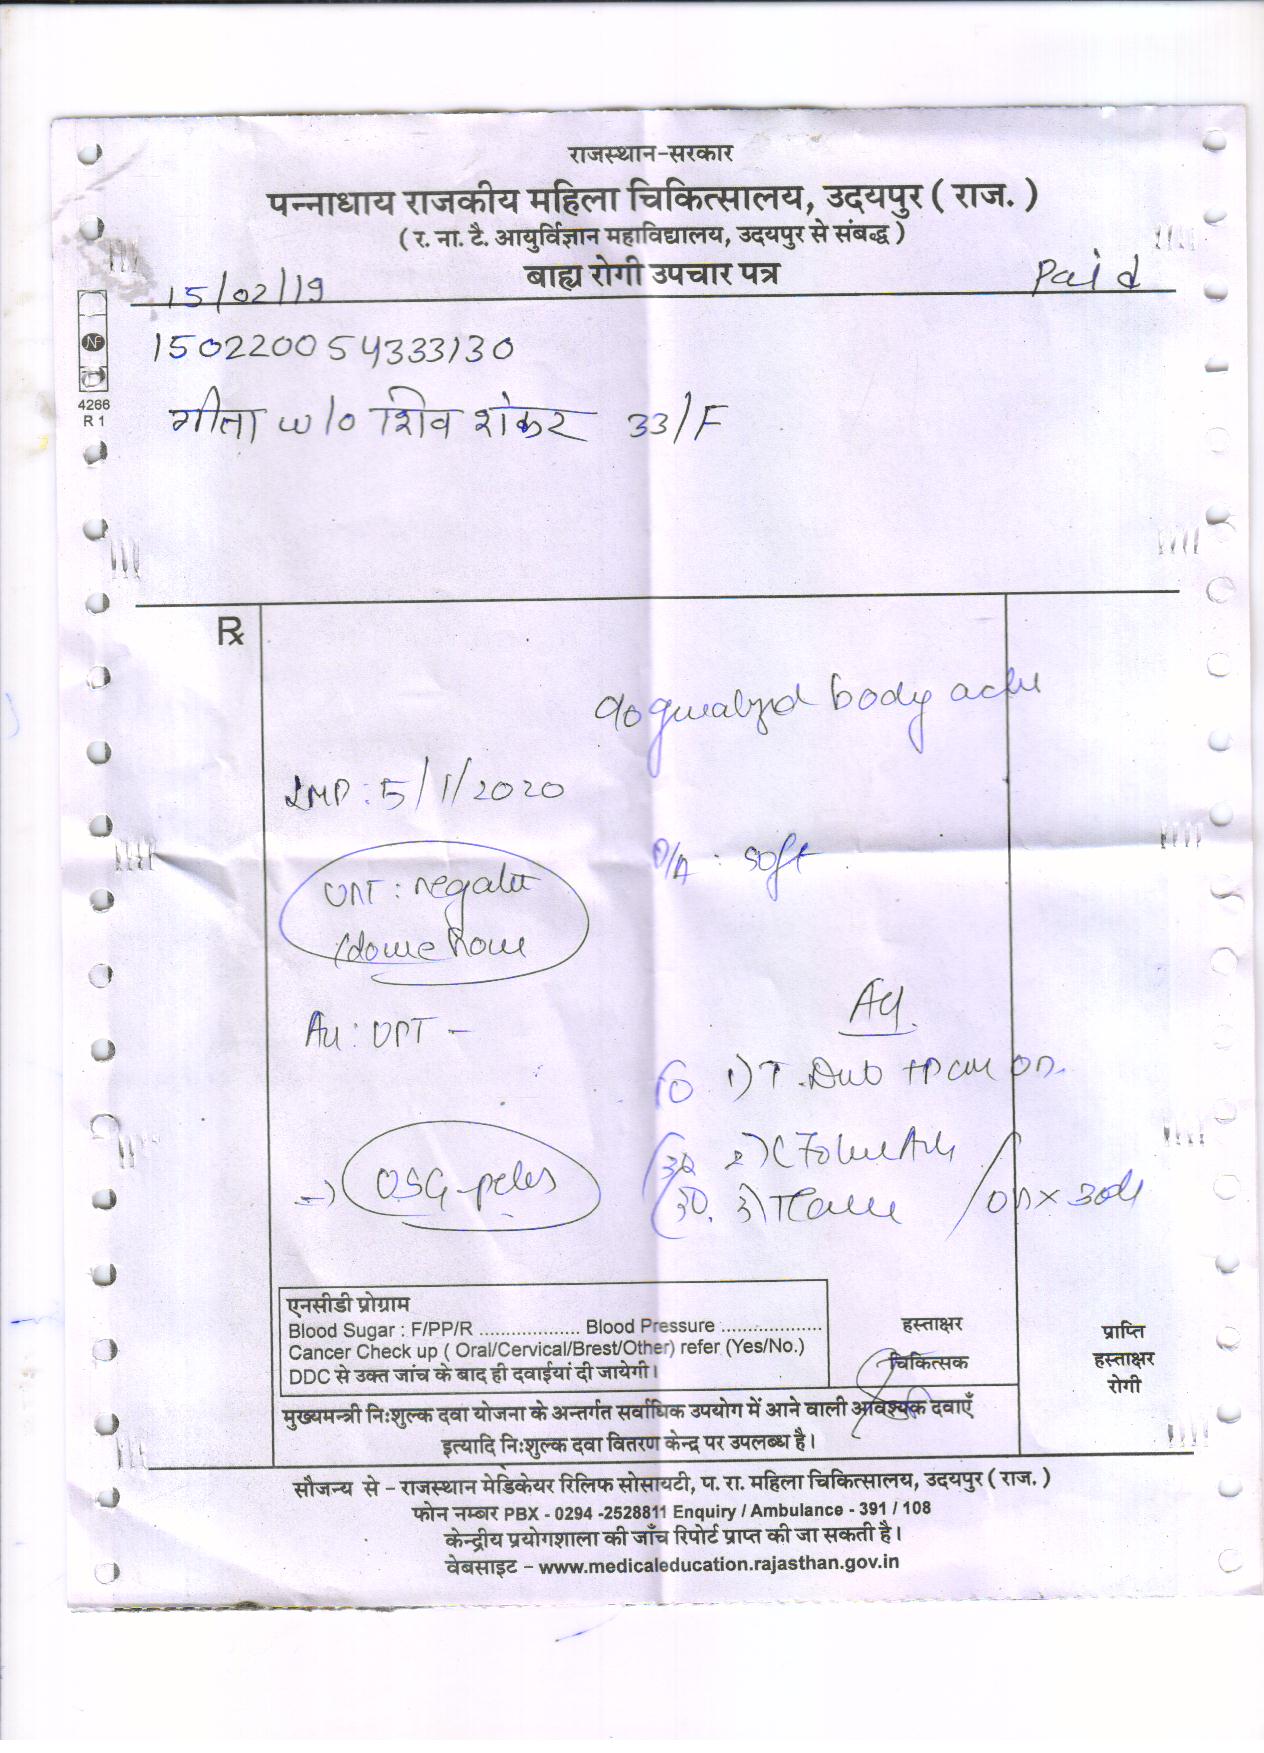 राजस्थान-सरकार
पन्नाधाय राजकीय महिला चिकित्सालय, उदयपुर ( राज. )
( र. ना. टै. आयुर्विज्ञान महाविद्यालय, उदयपुर से संबद्ध )
बाह्य रोगी उपचार पत्र
15/02/19
Paid
150220054333130
NF
4266
R 1
गीता w/o शिव शंकर 33/F
Rx
body ache
LMP : 5/1/2020
P/A : soft
UPT : negative
home
UPT -
1) T.
2)
3)
OD x 30d
USG pelvis
एनसीडी प्रोग्राम
Blood Sugar : F/PP/R ................... Blood Pressure ...................
Cancer Check up ( Oral/Cervical/Brest/Other) refer (Yes/No.)
DDC से उक्त जांच के बाद ही दवाईयां दी जायेगी।
हस्ताक्षर
चिकित्सक
प्राप्ति
हस्ताक्षर
रोगी
मुख्यमन्त्री निःशुल्क दवा योजना के अन्तर्गत सर्वाधिक उपयोग में आने वाली आवश्यक दवाएँ
इत्यादि निःशुल्क दवा वितरण केन्द्र पर उपलब्ध है।
सौजन्य से – राजस्थान मेडिकेयर रिलिफ सोसायटी, प. रा. महिला चिकित्सालय, उदयपुर ( राज. )
फोन नम्बर PBX - 0294 -2528811 Enquiry / Ambulance - 391 / 108
केन्द्रीय प्रयोगशाला की जाँच रिपोर्ट प्राप्त की जा सकती है।
वेबसाइट – www.medicaleducation.rajasthan.gov.in